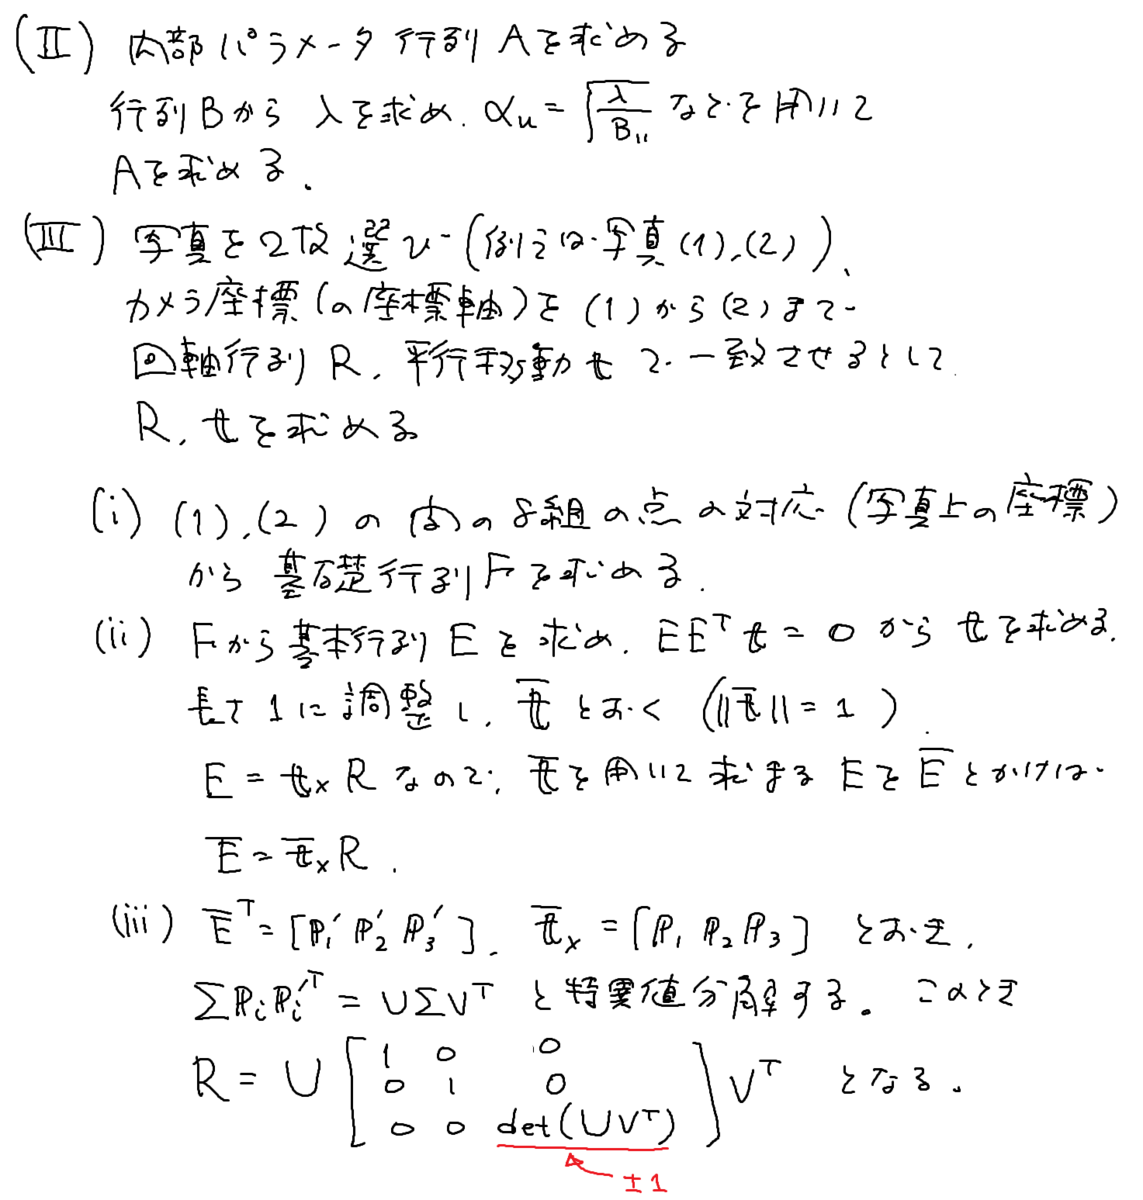 (II) 内部パラメータ行列 Aを求める
行列Bから λを求め、αu = √(λ/B₁₁) などを用いて
Aを求める。
(III) 写真を2枚選び (例えば写真(1),(2))、
カメラ座標(の座標軸)を(1)から(2)まで
回軸行列 R、平行移動 t で一致させるとして
R, tを求める
(i) (1),(2)の間の8組の点の対応(写真上の座標)
から 基礎行列Fを求める.
(ii) Fから基本行列Eを求め、EEᵀt = 0 から tを求める.
長さ1に調整し、t̄ とおく (||t̄|| = 1)
E = t× R なので、t̄を用いて求まる EをĒとかけば
Ē = t̄× R .
(iii) Ēᵀ = [p₁′ p₂′ p₃′], t̄× = [p₁ p₂ p₃] とおき,
Σpᵢpᵢ′ᵀ = UΣVᵀ と特異値分解する。このとき
R = U [1 0 0
0 1 0
0 0 det(UVᵀ)] Vᵀ となる。
±1